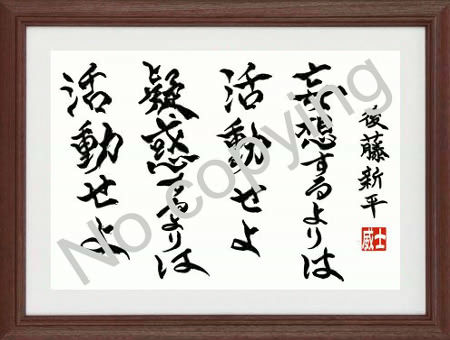 妄想するよりは
活動せよ
疑惑するよりは
活動せよ
後藤新平
威士
No copying